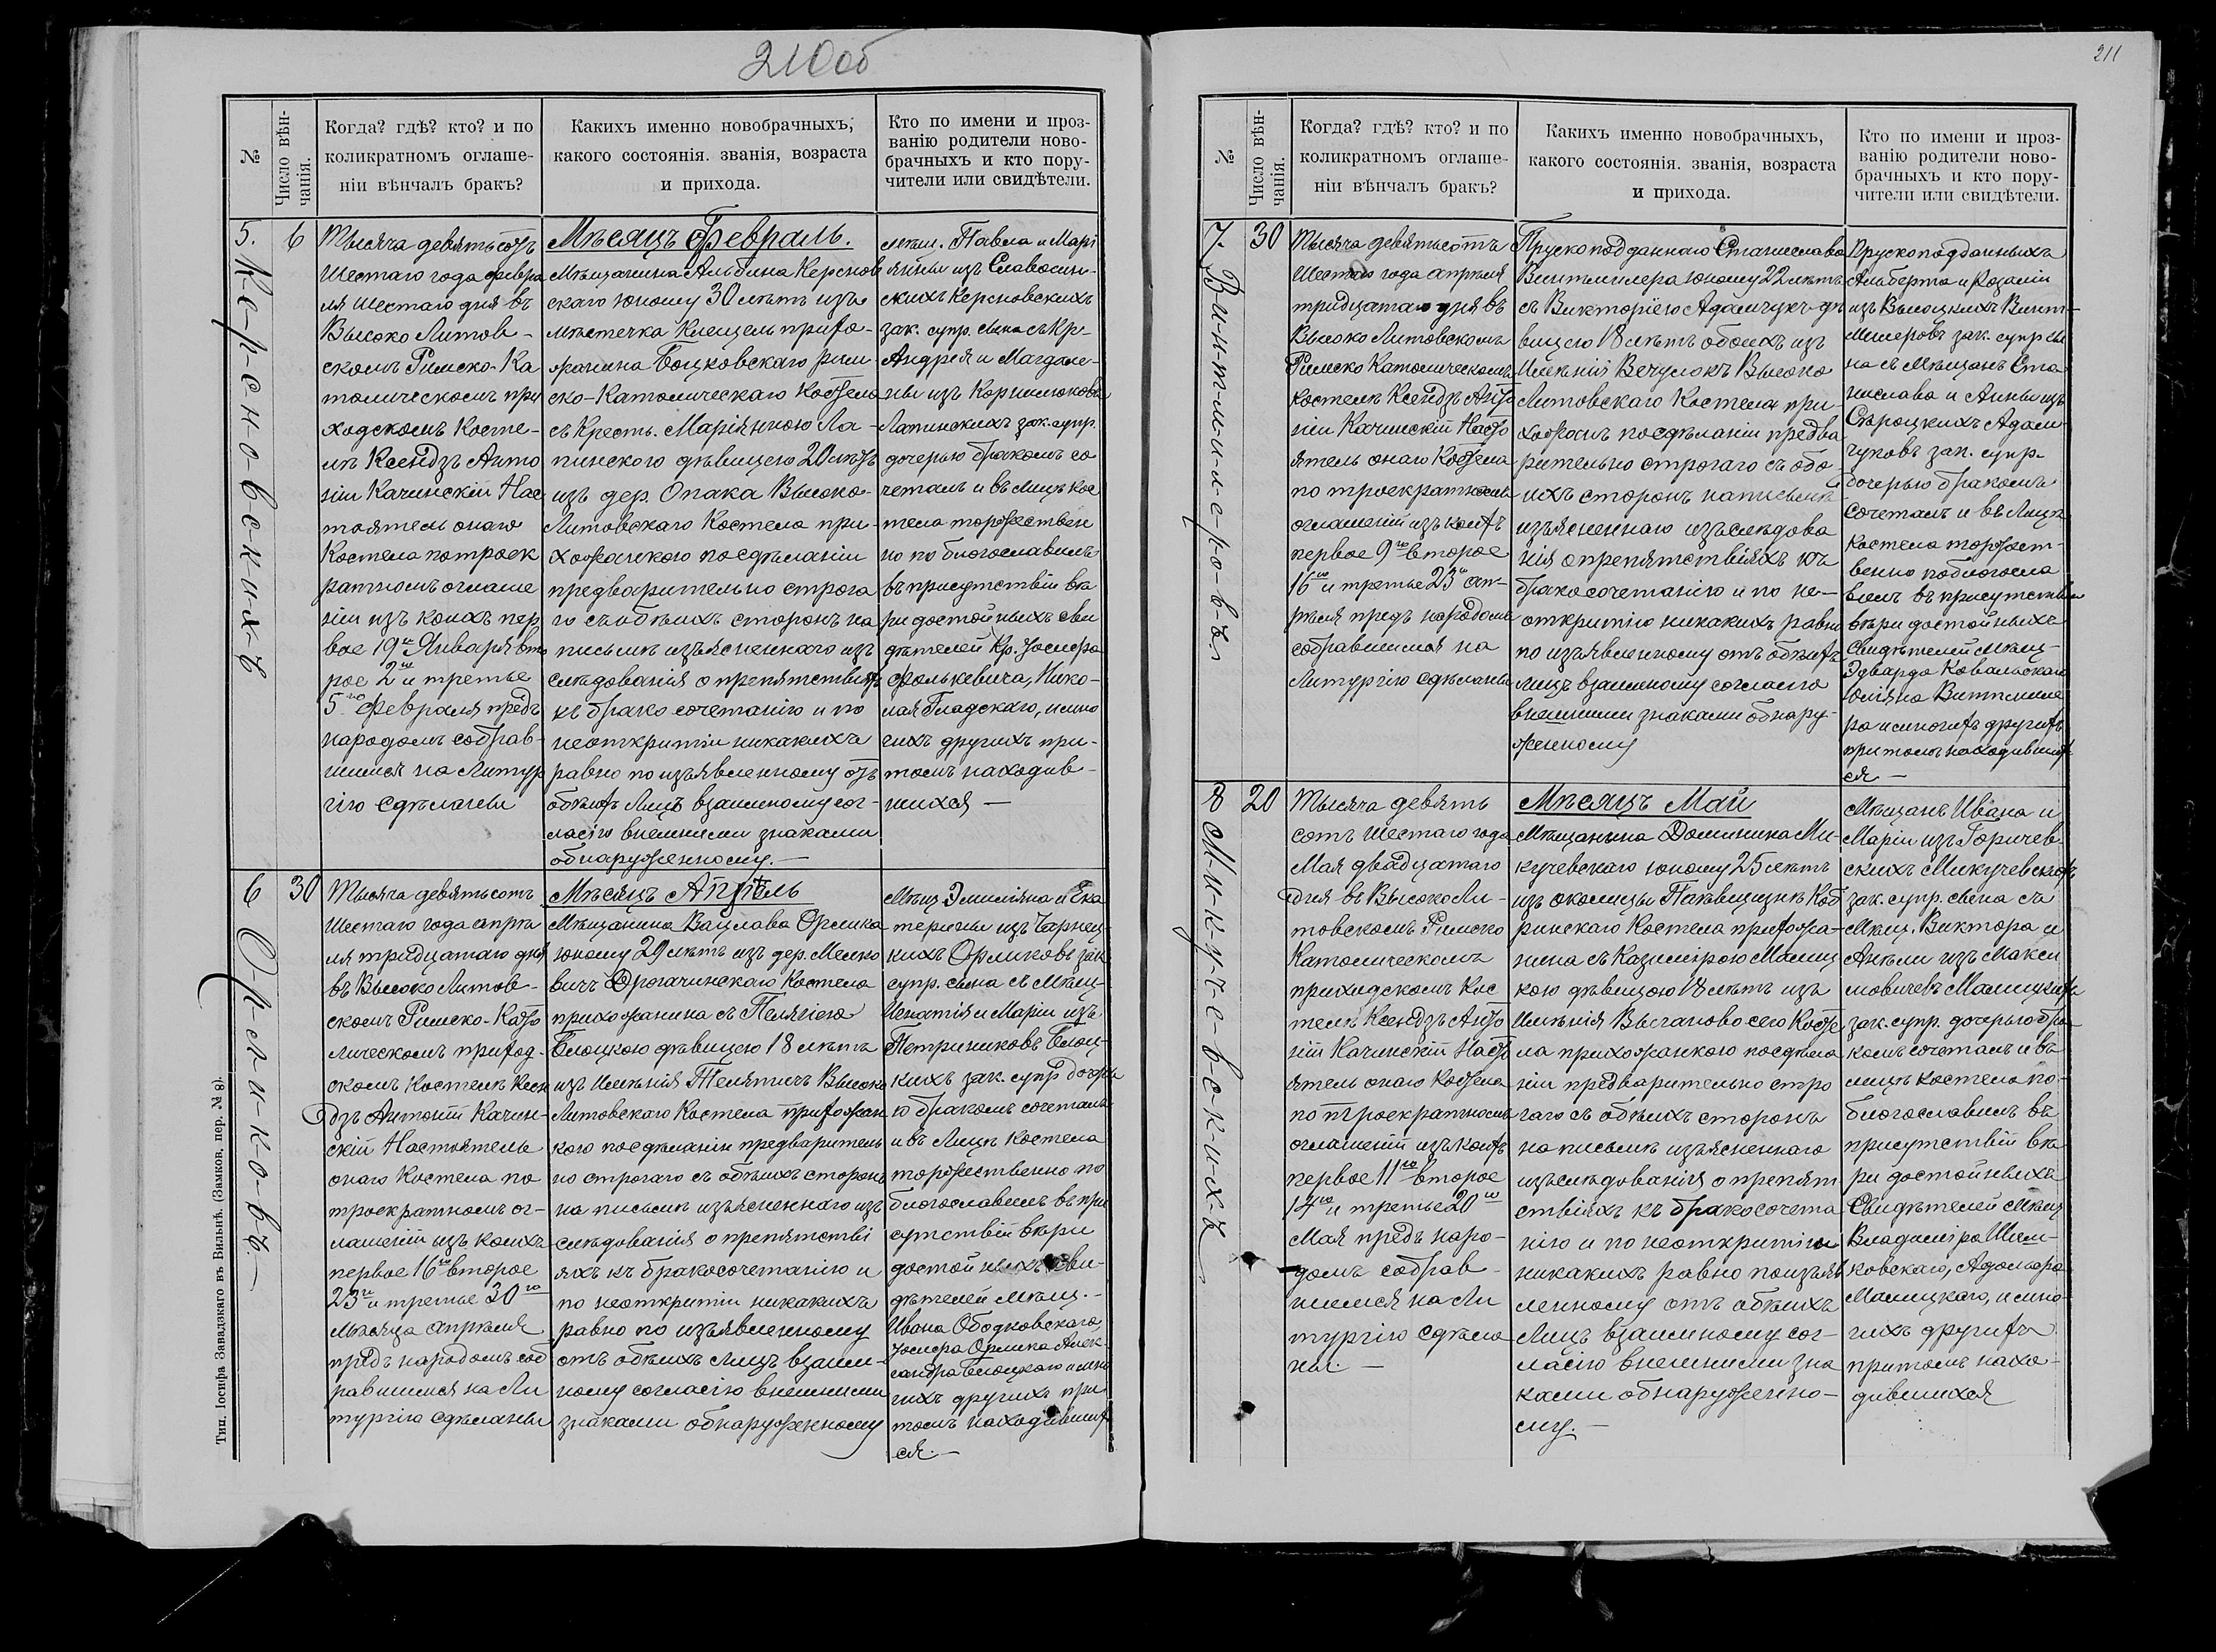 210об
№
Число вѣн-
чанія.
Когда? гдѣ? кто? и по
коликратномъ оглаше-
ніи вѣнчалъ бракъ?
Какихъ именно новобрачныхъ,
какого состоянія. званія, возраста
и прихода.
Кто по имени и проз-
ванію родители ново-
брачныхъ и кто пору-
чители или свидѣтели.
5.
Керсновскихъ
6
Тысяча девятьсотъ
Шестаго года февра
ля шестаго дня въ
Высоко Литов-
скомъ Римско-Ка
толическомъ при
ходскомъ Косте-
лѣ Ксендзъ Анто
ній Качинскій Нас
тоятель онаго
Костела по троек
ратномъ оглаше
ніи изъ коихъ пер
вое 19го Января вто
рое 2го и третье
5го Февраля предъ
народомъ собрав-
шимся на Литур
гію сдѣланы
Мѣсяцъ Февраль.
Мѣщанина Альбина Керснов
скаго юношу 30 лѣтъ изъ
мѣстечка Клещель прихо-
жанина Боцковскаго рим-
ско-Католическаго Костела
съ Крест. Маріянною Ла-
пинскою дѣвицею 20 лѣтъ
изъ дер. Опака Высоко-
Литовскаго Костела при-
хожанкою по сдѣланіи
предварительно строга
го съ обѣихъ сторонъ на
письмѣ изъясненнаго из
слѣдованія о препятствіяхъ
къ брако сочетанію и по
неоткритіи никакихъ
равно по изъявленному отъ
обѣихъ Лицъ взаимному сог-
ласію внешними знаками
обнаруженному.—
мѣщ. Павла и Марі
янны изъ Славосин-
скихъ Керсновскихъ
зак. супр. сына съ Кр-
Андрея и Магдале-
ны изъ Корнилюковъ
Лапинскихъ зак. супр.
дочерью бракомъ со
четалъ и въ Лицѣ кос
тела торжествен
но поблогославилъ
въ присутствіи вѣ
ри достойныхъ сви
дѣтелей Кр. Іосифа
Фолькевича, Нико-
лая Гладскаго, и мно
гихъ другихъ при-
томъ находив-
шихся —
6
Орликовъ.—
30
Тысяча девятьсотъ
Шестаго года апрѣ
ля тридцатаго дня
въ Высоко Литов-
скомъ Римско-Като
лическомъ приход-
скомъ Костелѣ Ксен
дзъ Антоній Качин-
скій Настоятель
онаго Костела по
троекратномъ ог-
лашеніи изъ коихъ
первое 16го второе
23го и третье 30го
мѣсяца апрѣля
предъ народомъ соб
равшимся на Ли
тургію сдѣланы
Мѣсяцъ Апрѣль
Мѣщанина Вацлава Орлика
юношу 29 лѣтъ изъ дер. Мелко
вичъ Дрогачинскаго Костела
прихожанина съ Пелягіею
Блоцкою дѣвицею 18 лѣтъ
изъ Имѣнія Телятичъ Высоко
Литовскаго Костела прихожан
кою по сдѣланіи предваритель
но строгаго съ обѣихъ сторонъ
на письмѣ изъясненнаго изъ
слѣдованія о препятстві
яхъ къ бракосочетанію и
по неоткритіи никакихъ
равно по изъявленному
отъ обѣихъ лицъ взаим-
ному согласію внешними
знаками обнаруженному
Мѣщ. Эмиліяна и Ека
терины изъ Чарнец-
кихъ Орликовъ зак.
супр. сына съ мѣщ-
Игнатія и Маріи изъ
Петриниковъ Блоц-
кихъ зак. супр дочерь
ю бракомъ сочеталъ
и въ Лицѣ Костела
торжественно по
блогославилъ въ при
сутствіи вѣри
достойныхъ сви-
дѣтелей мѣщ.-
Ивана Ободковскаго,
Іосифа Орлика Алек-
сандра Блоцкаго и мно
гихъ другихъ при
томъ находивших
ся.—
Тип. Іосифа Завадзкаго въ Вильнѣ. (Замков. пер. № 8).
211
№
Число вѣн-
чанія.
Когда? гдѣ? кто? и по
коликратномъ оглаше-
ніи вѣнчалъ бракъ?
Какихъ именно новобрачныхъ,
какого состоянія. званія, возраста
и прихода.
Кто по имени и проз-
ванію родители ново-
брачныхъ и кто пору-
чители или свидѣтели.
7.
Винтмилеровъ
30
Тысяча девятьсотъ
Шестаго года апрѣля
тридцатаго дня въ
Високо Литовскомъ
Римско Католическомъ
костелѣ Ксендзъ Анто
ній Качинскій Насто
ятель онаго Костела
по троекратномъ
оглашеній изъ коихъ
первое 9го второе
16го и третье 23го ап-
рѣля предъ народомъ
собравшимся на
Литургію сдѣланы
Пруско подданнаго Станислава
Винтмилера юношу 22 лѣтъ
съ Викторіею Адамчукъ дѣ
вицею 18 лѣтъ обоихъ изъ
Имѣнія Вечулокъ Высоко
Литовскаго Костела при-
хожанъ по сдѣланіи предва
рительно строгаго съ обо-
ихъ сторонъ написьмѣ
изъясненнаго изъслѣдова
нія о препятствіяхъ къ
бракосочетанію и по не-
откритію никакихъ равно
по изъявленному отъ обѣихъ
лицъ взаимному согласію
внешними знаками обнару-
женному
Прускоподданныхъ
Альберта и Розаліи
изъ Высоцкихъ Винт-
милеровъ зак. супр сы
на съ Мѣщанъ Ста
нислава и Анны изъ
Сѣроцкихъ Адам
чуковъ зак. супр-
дочерью бракомъ
сочеталъ и въ Лицѣ
Костела торжест-
венно поблогосла
вилъ въ присутствіи
вѣри достойныхъ
Свидѣтелей мѣщ-
Эдварда Ковальскаго
Юліяна Винтмиле
ра и многихъ другихъ
притомъ находивших
ся —
8
Микучевскихъ
20
Тысяча девять
сотъ Шестаго года
Мая двадцатаго
дня въ Высоко Ли-
товскомъ Римско
Католическомъ
приходскомъ Кос
телѣ Ксендзъ Анто
ній Качинскій Насто
ятель онаго Костела
по троекратномъ
оглашеній изъ коихъ
первое 11го второе
14го и третье 20го
Мая предъ наро-
домъ собрав-
шемся на Ли
тургію сдѣла
ны.—
Мѣсяцъ Май
Мѣщанина Доминика Ми-
кучевскаго юношу 25 лѣтъ
изъ околицы Коб
ринскаго Костела прихожа-
нина съ Казимірою Малиц
кою дѣвицою 18 лѣтъ изъ
Имѣнія Вычаново сего Косте
ла прихожанкою по сдѣла
ніи предварительно стро
гаго съ обѣихъ сторонъ
на письмѣ изъясненнаго
изъслѣдованія о препят
ствіяхъ къ бракосочета
нію и по неоткритіи
никакихъ равно поизъяв
ленному отъ обѣихъ
Лицъ взаимному сог-
ласію внешними зна
ками обнаруженно-
му.—
Мѣщанъ Ивана и
Маріи изъ Горичев-
скихъ Микучевскихъ
зак. супр. сына съ
Мѣщ. Виктора и
Анѣли изъ Макси
мовичевъ Малицкихъ
зак. супр. дочерью бра
комъ сочеталъ и въ
лицѣ костела по-
благославилъ въ
присутствіи вѣ
ри достойныхъ
Свидѣтелей Мѣщ
Владиміра Шим-
ковскаго, Адольфа
Малицкаго, и мно-
гихъ другихъ
притомъ нахо-
дившихся